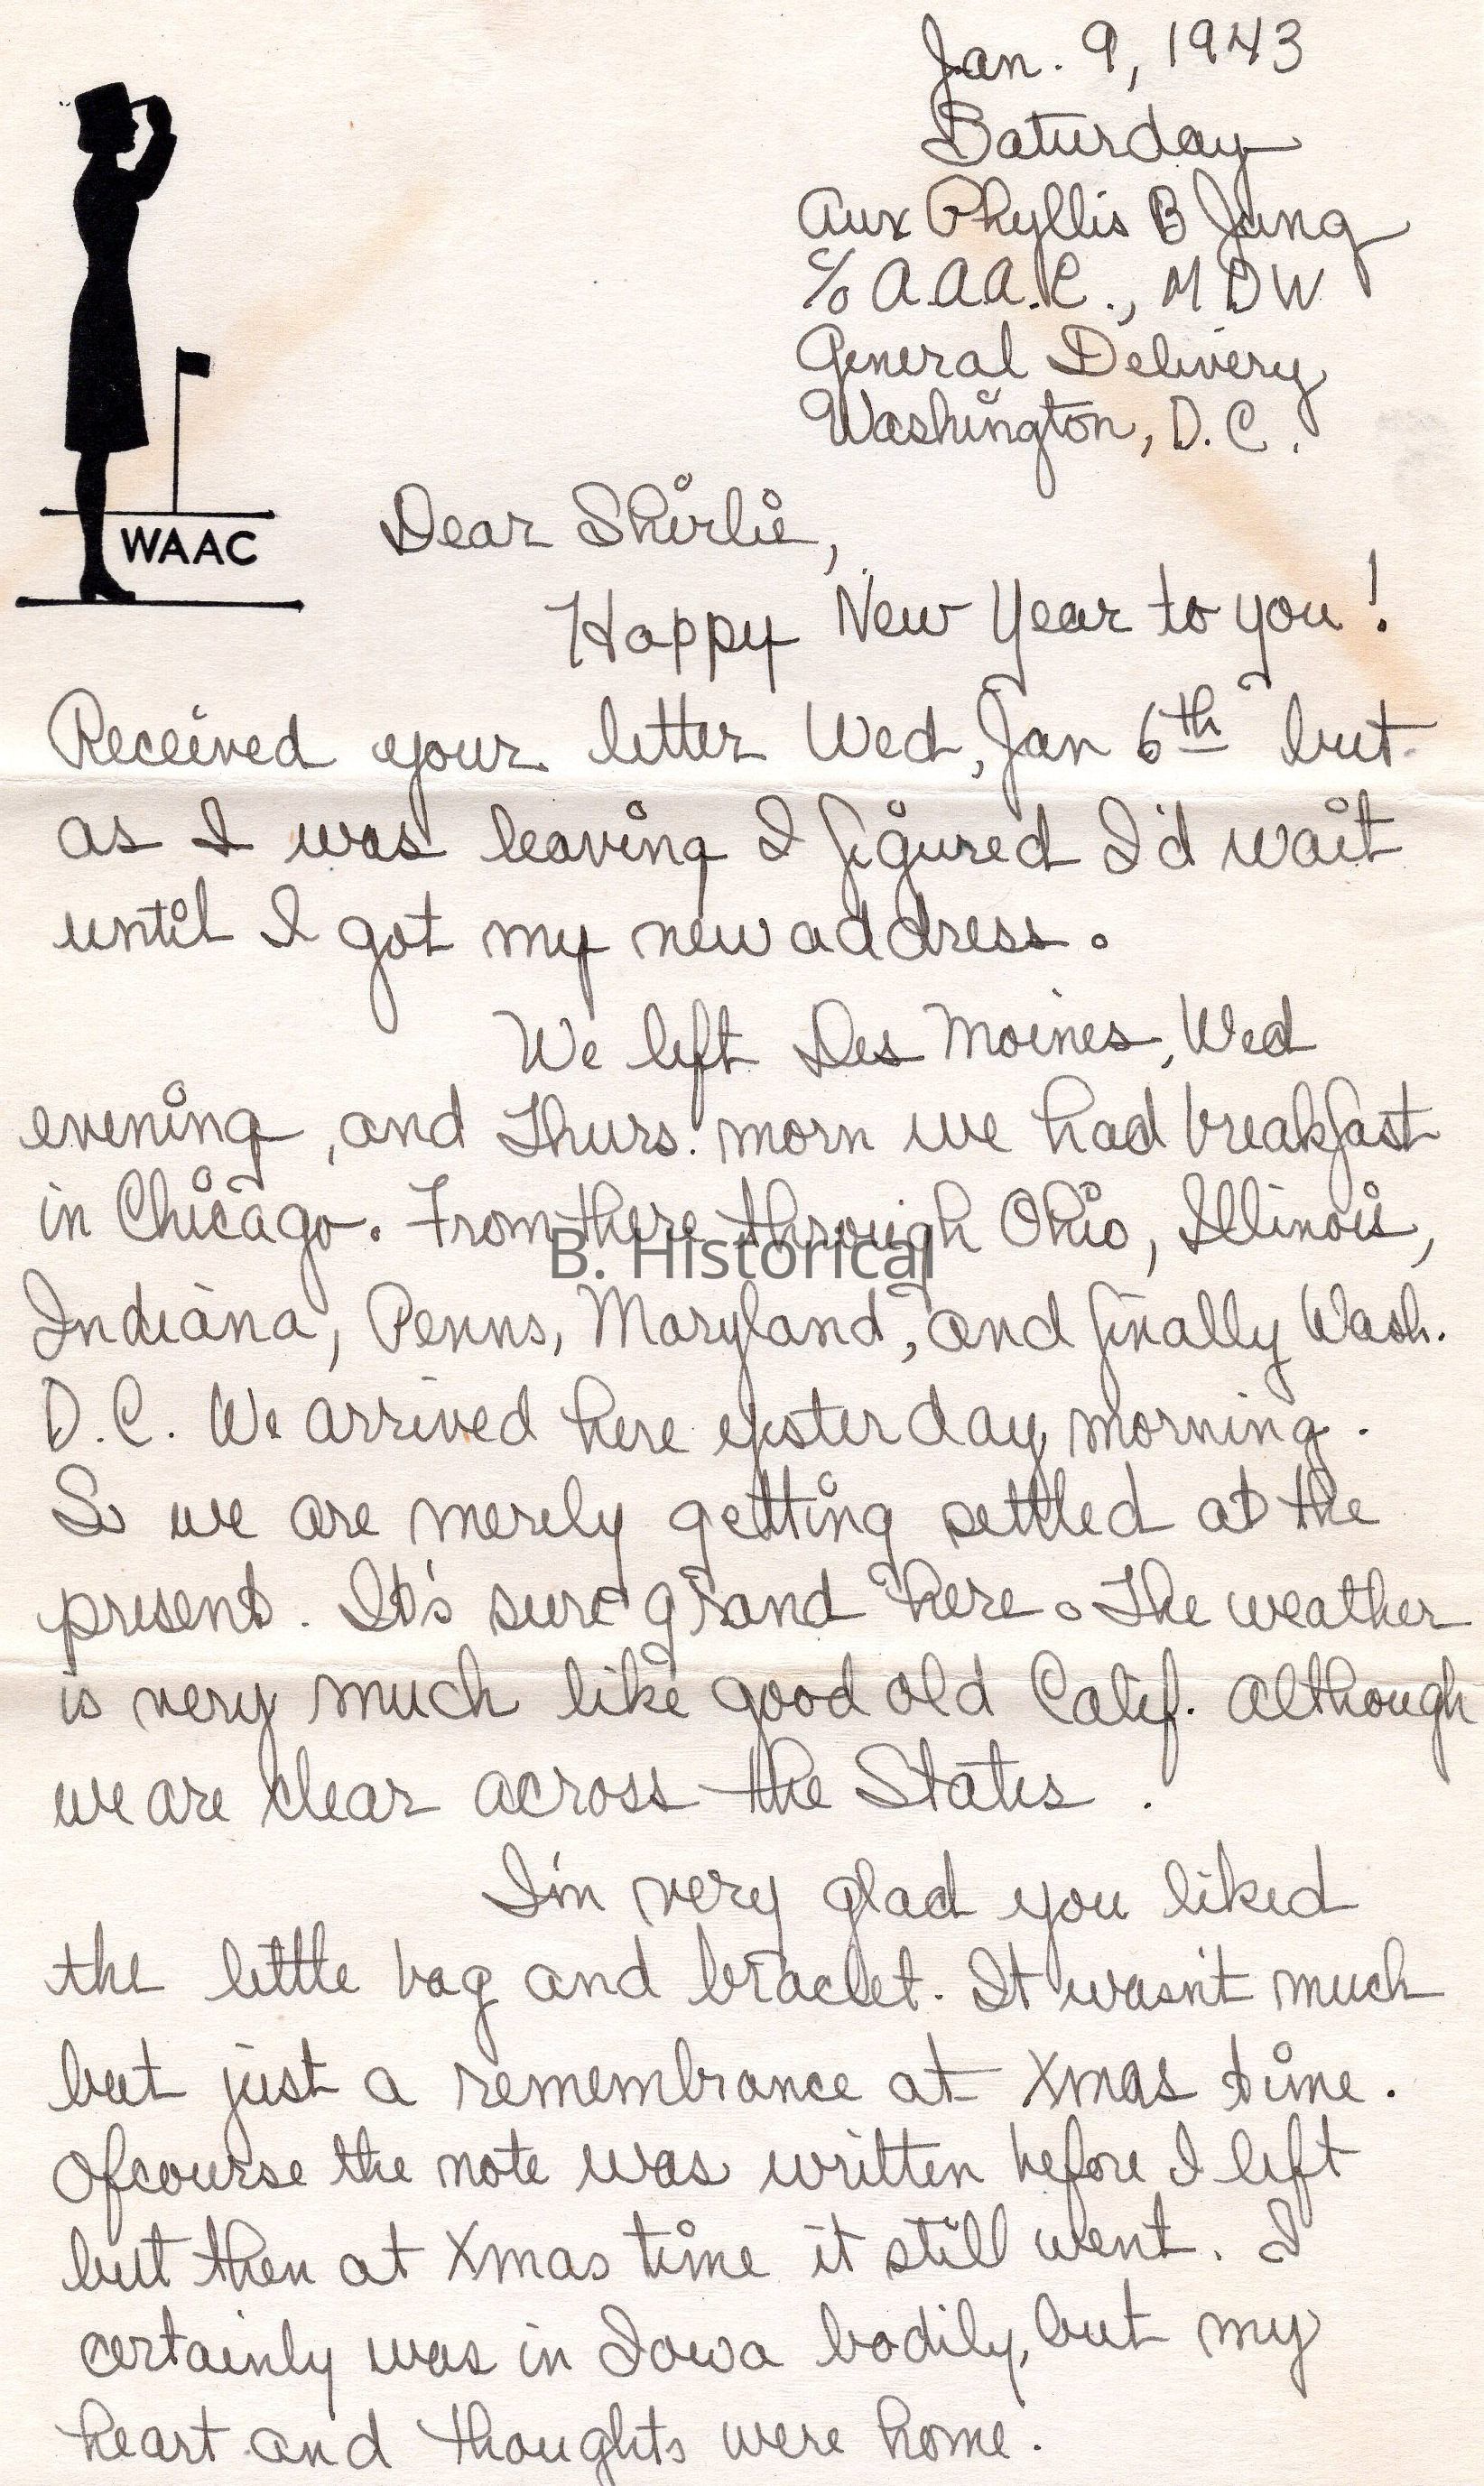 Jan. 9, 1943
Saturday
Aux Phyllis B Jung
c/o A.A.A.C., M D W
General Delivery
Washington, D.C.
WAAC
Dear Shirlie,
Happy New Year to you!
Received your letter Wed, Jan 6th but
as I was leaving I figured I'd wait
until I got my new address.
We left Des Moines, Wed
evening, and Thurs. morn we had breakfast
in Chicago. From there through Ohio, Illinois,
B. Historical
Indiana, Penns, Maryland, and finally Wash.
D.C. We arrived here yesterday morning.
So we are merely getting settled at the
present. It's sure grand here. The weather
is very much like good old Calif. although
we are clear across the States.
I'm very glad you liked
the little bag and braclet. It wasn't much
but just a remembrance at Xmas time.
Ofcourse the note was written before I left
but then at Xmas time it still went. I
certainly was in Iowa bodily, but my
heart and thoughts were home.